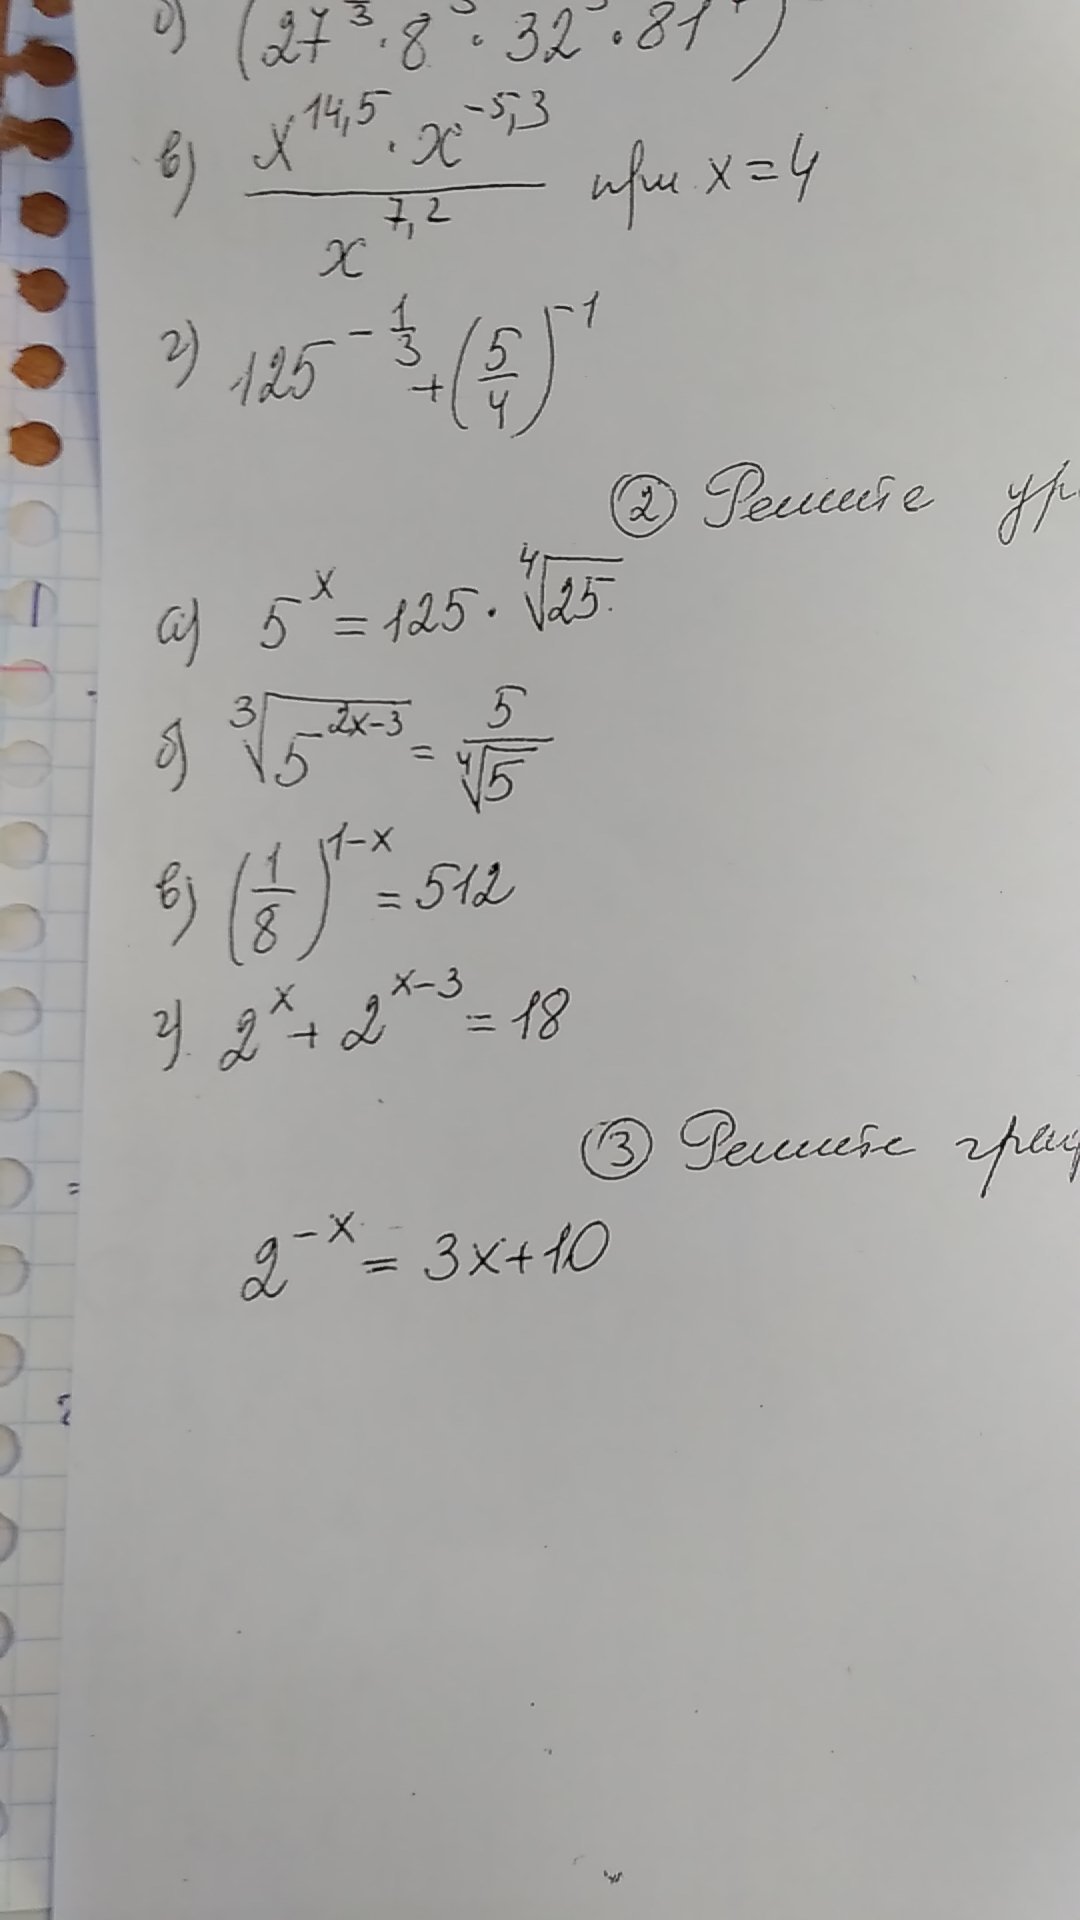 б) (27 · 8 · 32 · 81 )
в) x^14,5 · x^-5,3 / x^7,2 при x = 4
г) 125^(-1/3) + (5/4)^-1
② Решите
а) 5^x = 125 · ⁴√25
б) ³√5^(2x-3) = 5/⁴√5
в) (1/8)^(1-x) = 512
г) 2^x + 2^(x-3) = 18
③ Решите
2^-x = 3x+10